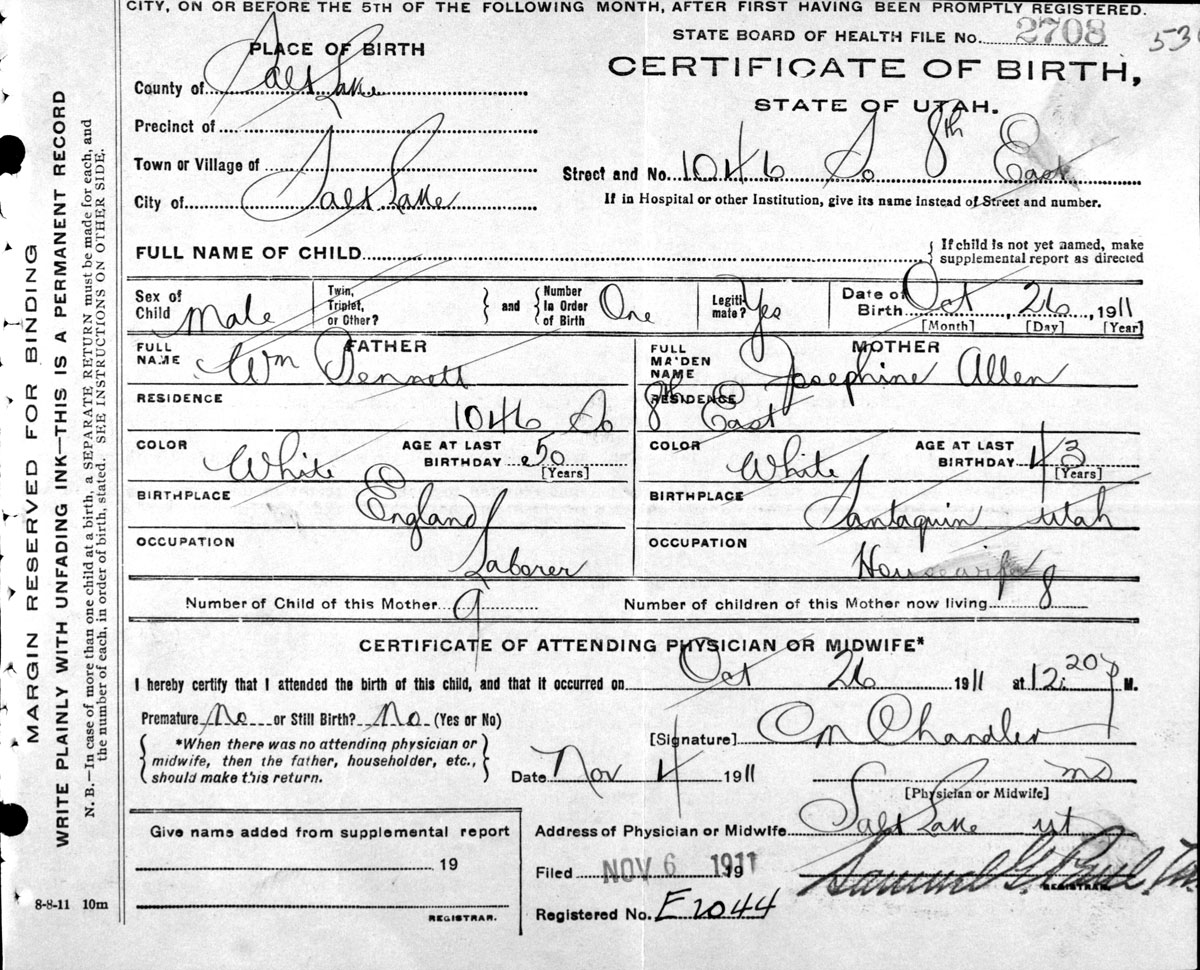 CITY, ON OR BEFORE THE 5TH OF THE FOLLOWING MONTH, AFTER FIRST HAVING BEEN PROMPTLY REGISTERED.
STATE BOARD OF HEALTH FILE No. 2708
CERTIFICATE OF BIRTH,
STATE OF UTAH.
PLACE OF BIRTH
County of Salt Lake
Precinct of
Town or Village of
City of Salt Lake
Street and No. 1046 So 8th East
If in Hospital or other Institution, give its name instead of Street and number.
FULL NAME OF CHILD
If child is not yet named, make
supplemental report as directed
Sex of
Child Male
Twin,
Triplet,
or Other?
and
Number
In Order
of Birth One
Legiti-
mate? Yes
Date of
Birth Oct 26, 1911
[Month] [Day] [Year]
FATHER
FULL
NAME Wm Bennett
RESIDENCE
1046 So
COLOR White
AGE AT LAST
BIRTHDAY 50
[Years]
BIRTHPLACE
England
OCCUPATION
Laborer
MOTHER
FULL
MAIDEN
NAME Josephine Allen
RESIDENCE
8th East
COLOR White
AGE AT LAST
BIRTHDAY 43
[Years]
BIRTHPLACE
Santaquin Utah
OCCUPATION
Housewife
Number of Child of this Mother 9
Number of children of this Mother now living 8
CERTIFICATE OF ATTENDING PHYSICIAN OR MIDWIFE*
I hereby certify that I attended the birth of this child, and that it occurred on Oct 26 1911 at 12:20 P M.
Premature No or Still Birth? No (Yes or No)
*When there was no attending physician or
midwife, then the father, householder, etc.,
should make this return.
[Signature] Om Chandler
Date Nov 4 1911
MD
[Physician or Midwife]
Give name added from supplemental report
19
REGISTRAR.
Address of Physician or Midwife Salt Lake ut
Filed NOV 6 1911 191
Samuel G. Paul
REGISTRAR.
Registered No. E2044
8-8-11 10m
MARGIN RESERVED FOR BINDING
WRITE PLAINLY WITH UNFADING INK—THIS IS A PERMANENT RECORD
N. B.—In case of more than one child at a birth, a SEPARATE RETURN must be made for each, and
the number of each, in order of birth, stated. SEE INSTRUCTIONS ON OTHER SIDE.